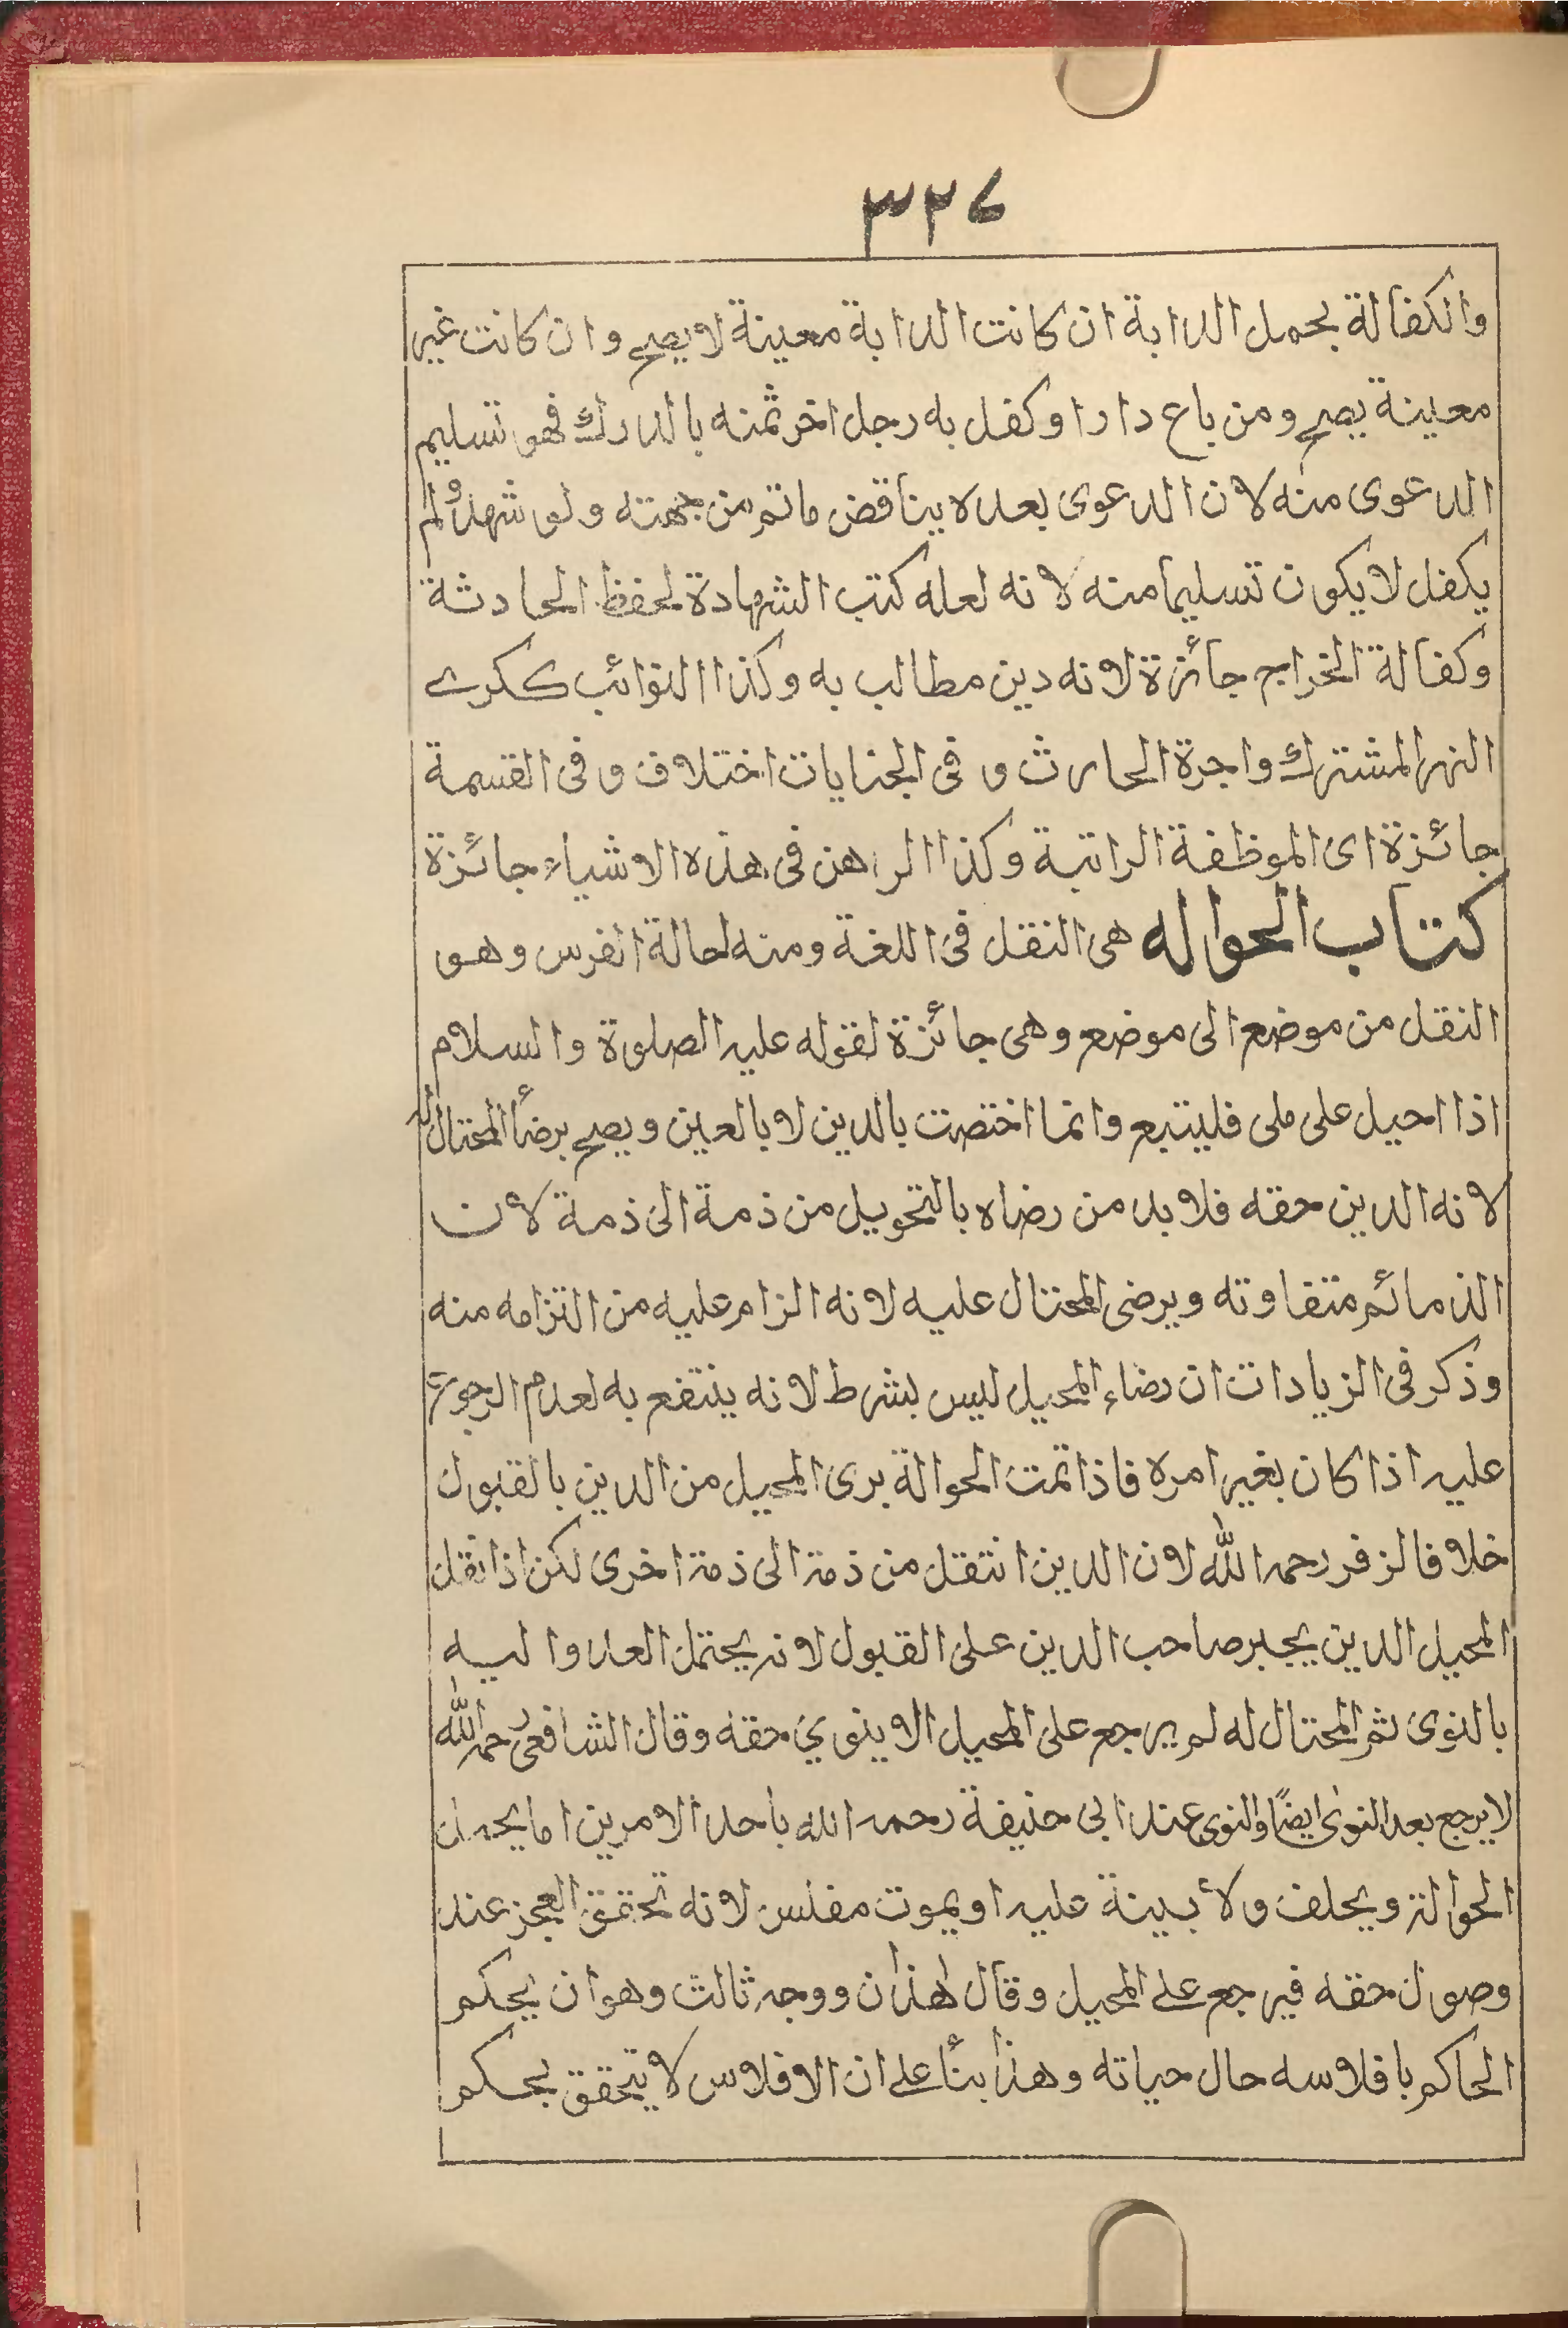 ٣٢٧
والكفالة بحمل الدابة ان كانت الدابة معينة لا يصح وان كانت غير
معينة يصح ومن باع دارا وكفل به رجل اخر ثمنه بالدرك فهو تسليم
الدعوى منه لان الدعوى بعده يناقض ما تم من جهته ولو شهد ولم
يكفل لا يكون تسليما منه لانه لعله كتب الشهادة لحفظ الحادثة
وكفالة الخراج جائزة لانه دين مطالب به وكذا النوائب ككرے
النهر المشترك واجرة الحارث و فى الجنايات اختلاف و فى القسمة
جائزة اى الموظفة الراتبة وكذا الرهن فى هذه الاشياء جائزة
كتاب الحواله هى النقل فى اللغة ومنه لحالة الفرس وهو
النقل من موضع الى موضع وهى جائزة لقوله عليه الصلوة والسلام
اذا احيل على ملى فليتبع وانما اختصت بالدين لا بالعين ويصح برضأ المحتال له
لانه الدين حقه فلا بد من رضاه بالتحويل من ذمة الى ذمة لان
الذمائم متفاوته ويرضى المحتال عليه لانه الزام عليه من التزامه منه
وذكر فى الزيادات ان رضاء المحيل ليس بشرط لانه ينتفع به لعدم الرجوع
عليه اذا كان بغير امره فاذا تمت الحوالة برى المحيل من الدين بالقبول
خلافا لزفر رحمه الله لان الدين انتقل من ذمة الى ذمة اخرى لكن اذا نقل
المحيل الدين يجبر صاحب الدين على القبول لانه يحتمل العدوا ليه
بالنوى ثم المحتال له لم يرجع على المحيل الا ينوي حقه وقال الشافعى رحمه الله
لا يرجع بعد النوى ايضًا والنوى عند ابى حنيفة رحمه الله باحد الامرين اما يجد ان
الحوالة ويحلف ولا بينة عليه او يموت مفلس لانه تحقق العجز عند
وصول حقه فيرجع على المحيل وقال هذان ووجه ثالث وهو ان يحكم
الحاكم بافلاسه حال حياته وهذا بنأ على ان الافلاس لا يتحقق بحكم